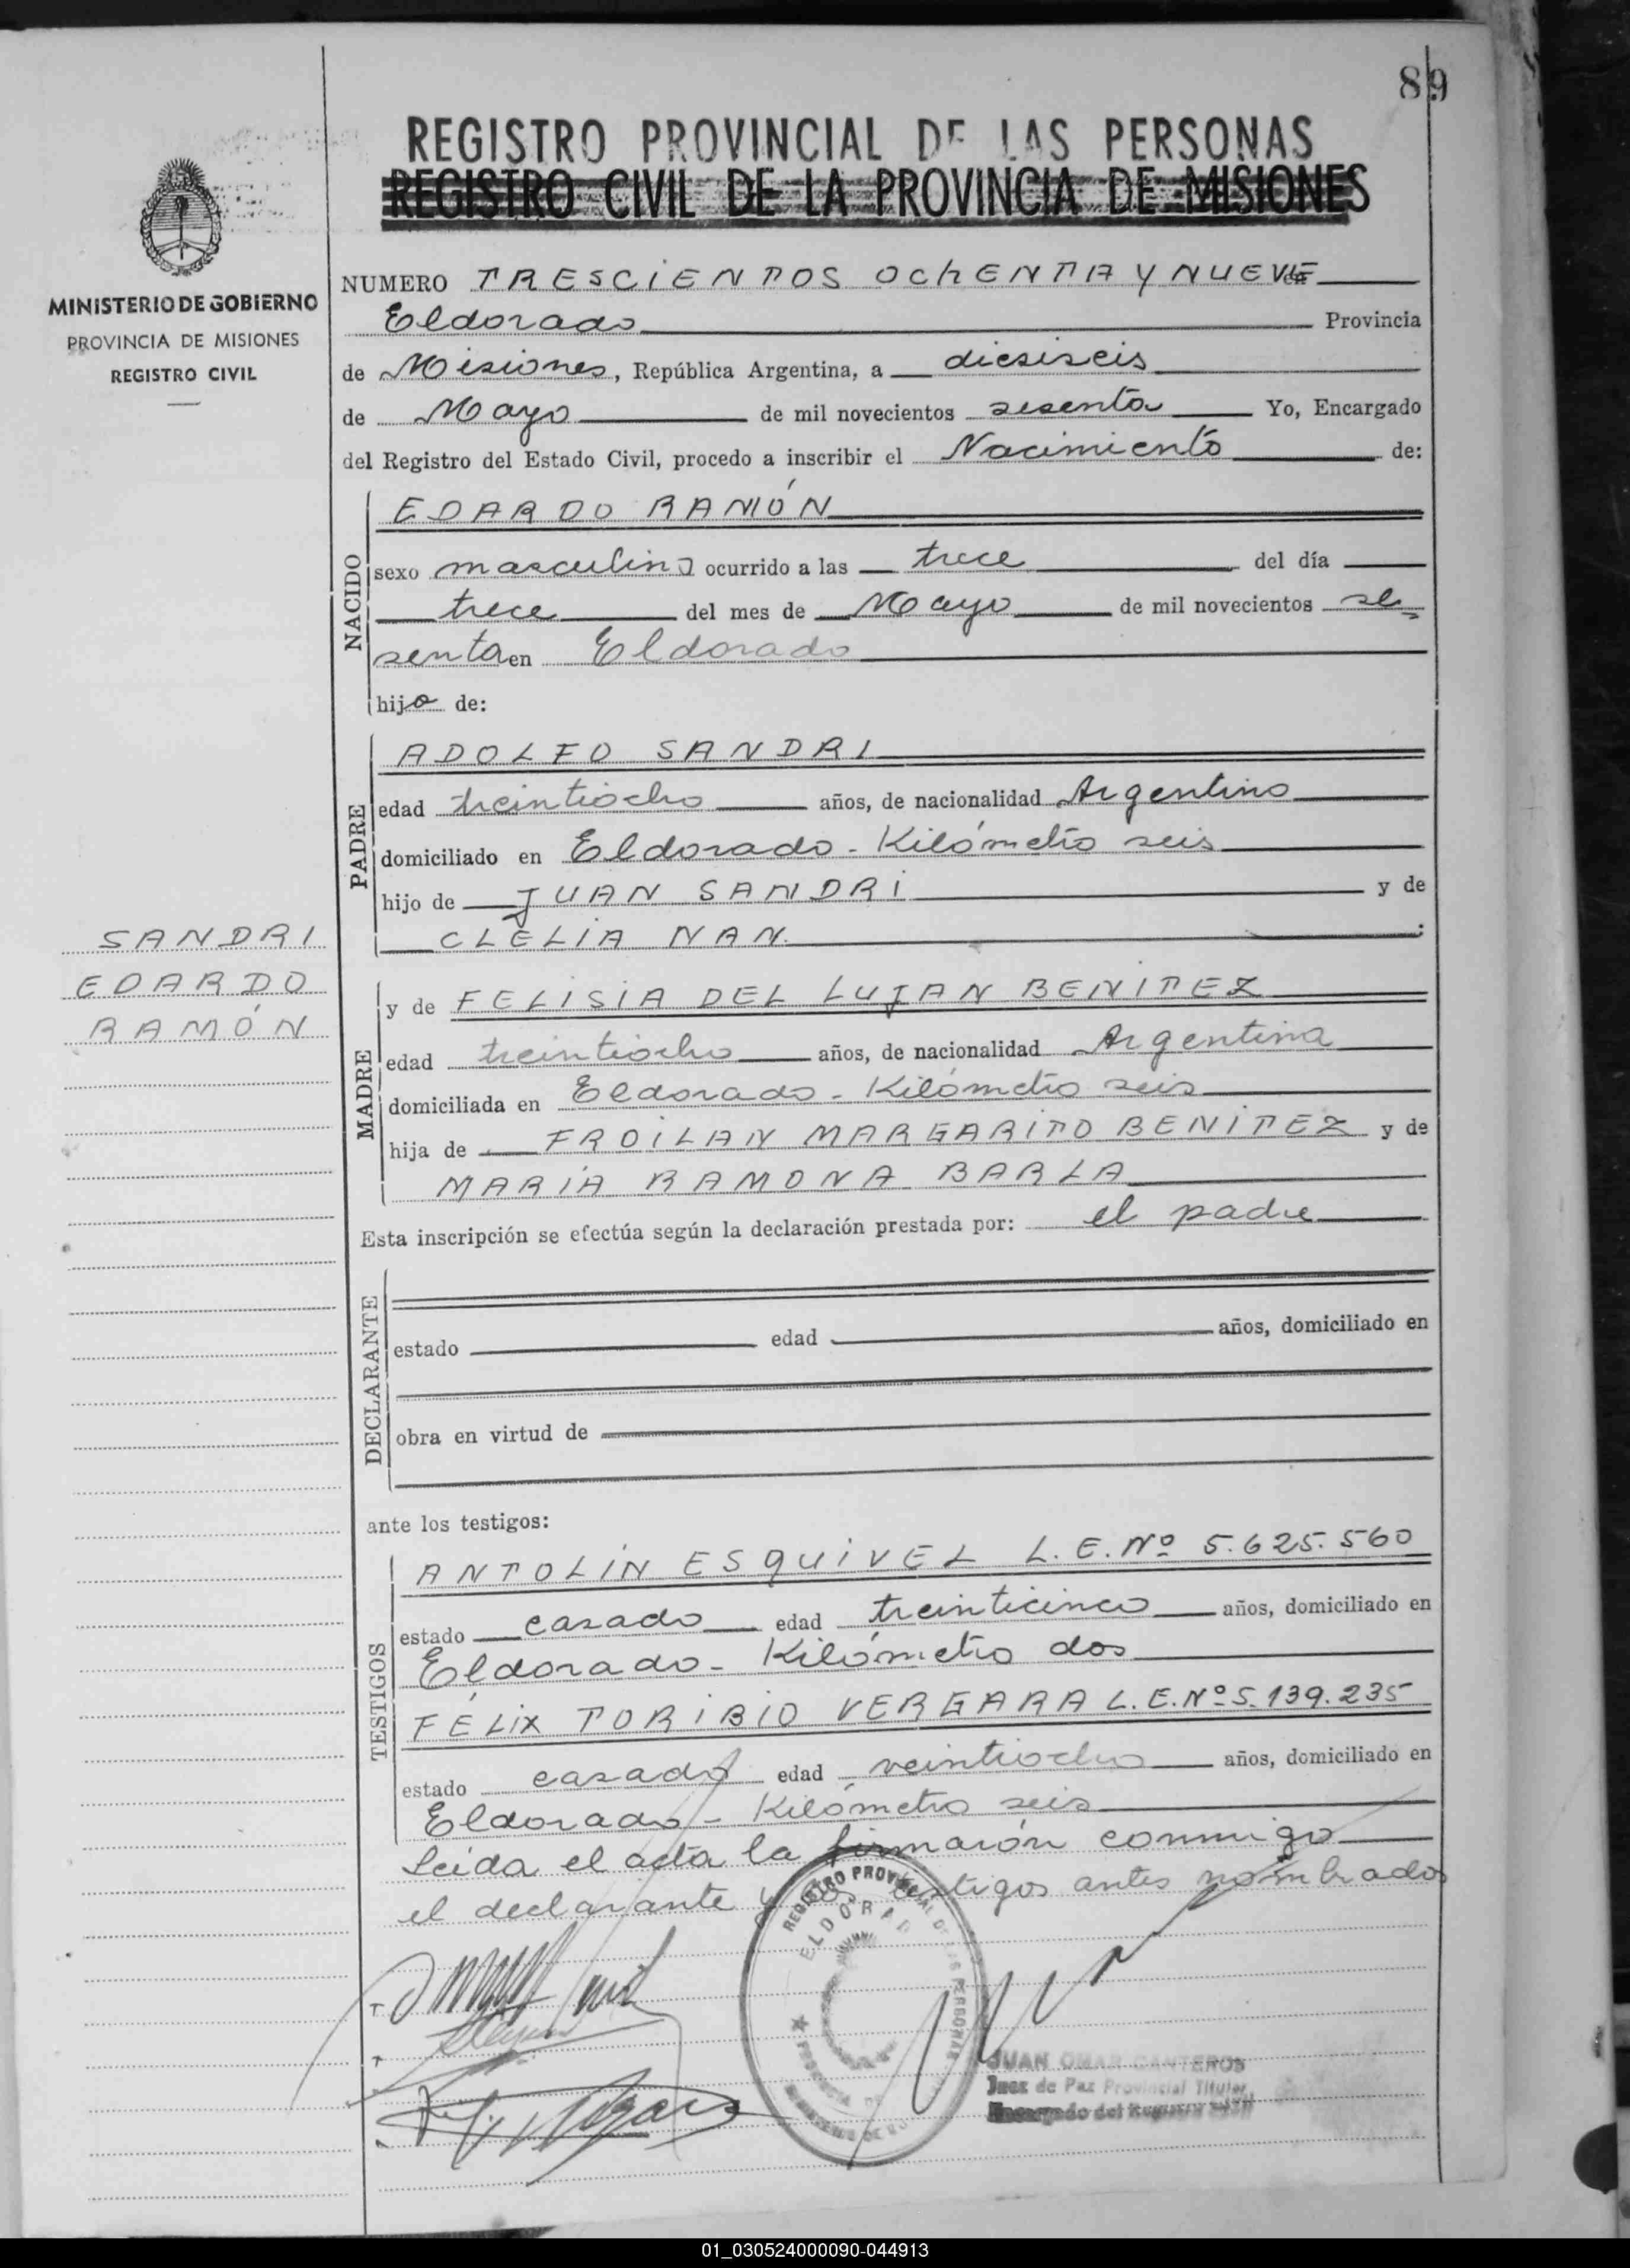 89
REGISTRO PROVINCIAL DE LAS PERSONAS
REGISTRO CIVIL DE LA PROVINCIA DE MISIONES
MINISTERIO DE GOBIERNO
PROVINCIA DE MISIONES
REGISTRO CIVIL
NUMERO TRESCIENTOS OCHENTA Y NUEVE
Eldorado Provincia
de Misiones, República Argentina, a diesiseis
de Mayo de mil novecientos sesenta Yo, Encargado
del Registro del Estado Civil, procedo a inscribir el Nacimiento de:
NACIDO
EDARDO RAMÓN
sexo masculino ocurrido a las trece del día
trece del mes de Mayo de mil novecientos se=
senta en Eldorado
hijo de:
PADRE
ADOLFO SANDRI
edad treintiocho años, de nacionalidad Argentino
domiciliado en Eldorado - Kilómetro seis
hijo de JUAN SANDRI y de
CLELIA NAN.
SANDRI
EDARDO
RAMÓN
MADRE
y de FELISIA DEL LUJAN BENITEZ
edad treintiocho años, de nacionalidad Argentina
domiciliada en Eldorado - Kilómetro seis
hija de FROILAN MARGARITO BENITEZ y de
MARÍA RAMONA BARLA
Esta inscripción se efectúa según la declaración prestada por: el padre
DECLARANTE
estado edad años, domiciliado en
obra en virtud de
ante los testigos:
TESTIGOS
ANTOLÍN ESQUIVEL L.E.Nº 5.625.560
estado casado edad treinticinco años, domiciliado en
Eldorado - Kilómetro dos
FÉLIX TORIBIO VERGARA L.E.Nº 5.139.235
estado casado edad veintiocho años, domiciliado en
Eldorado - Kilómetro seis
Leida el acta la firmarón conmigo
el declarante y los testigos antes nombrados
REGISTRO PROVINCIAL DE LAS PERSONAS
ELDORADO
PROVINCIA DE
JUAN OMAR CANTEROS
Juez de Paz Provincial Titular
Encargado del Registro Civil
01_030524000090-044913